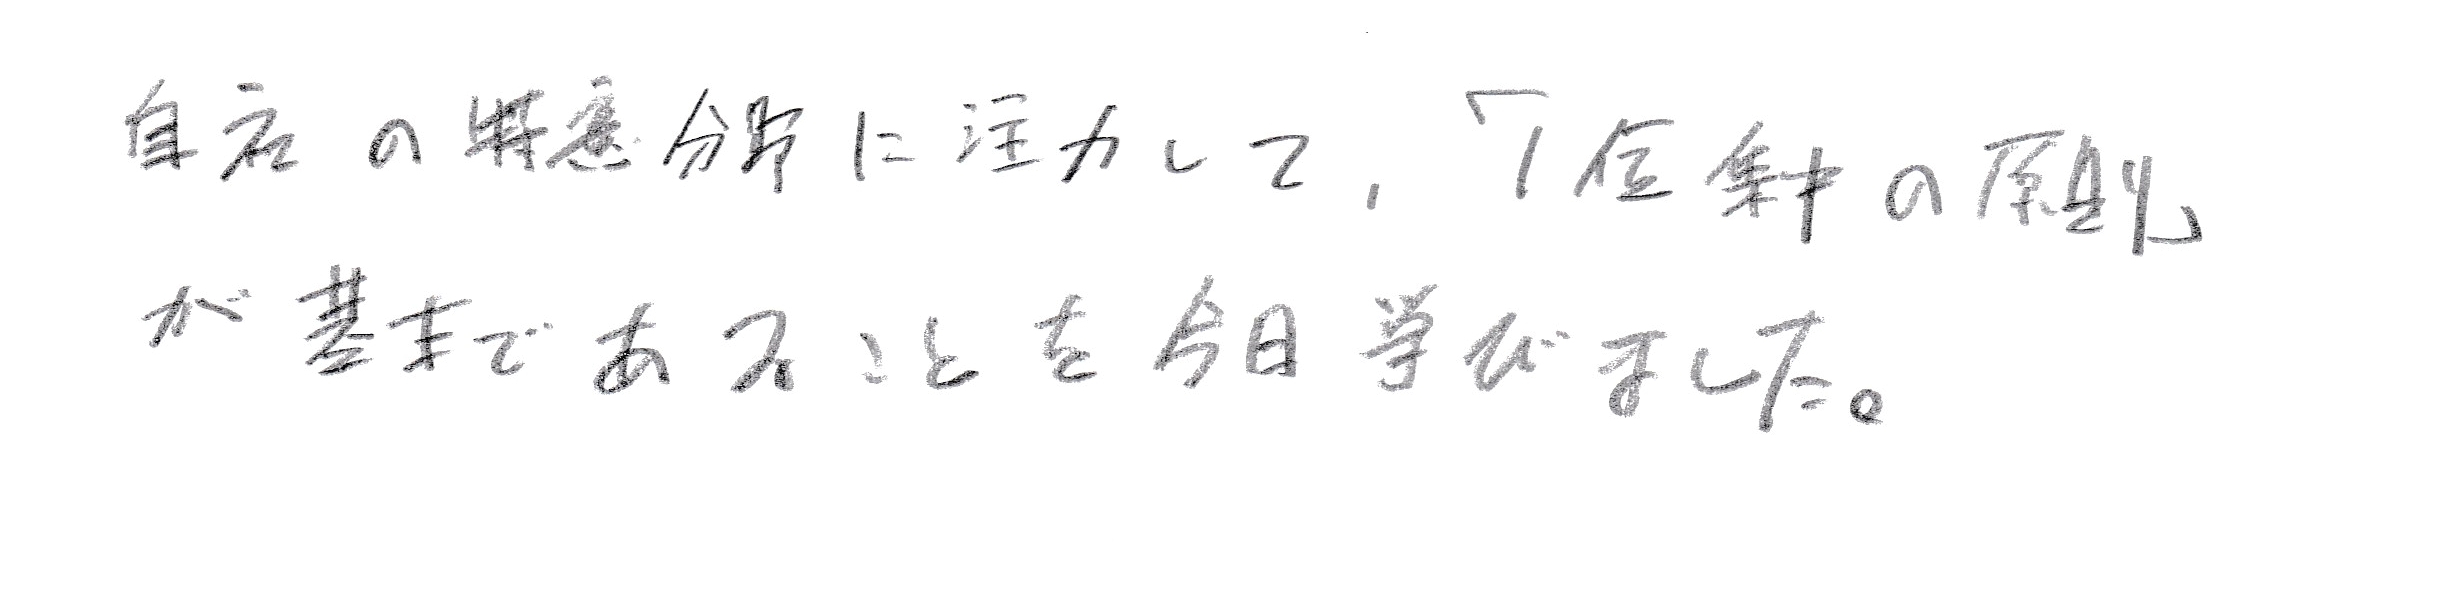 自店の得意分野に注力して,「1位集中の原則」
が基本であることを今日学びました。